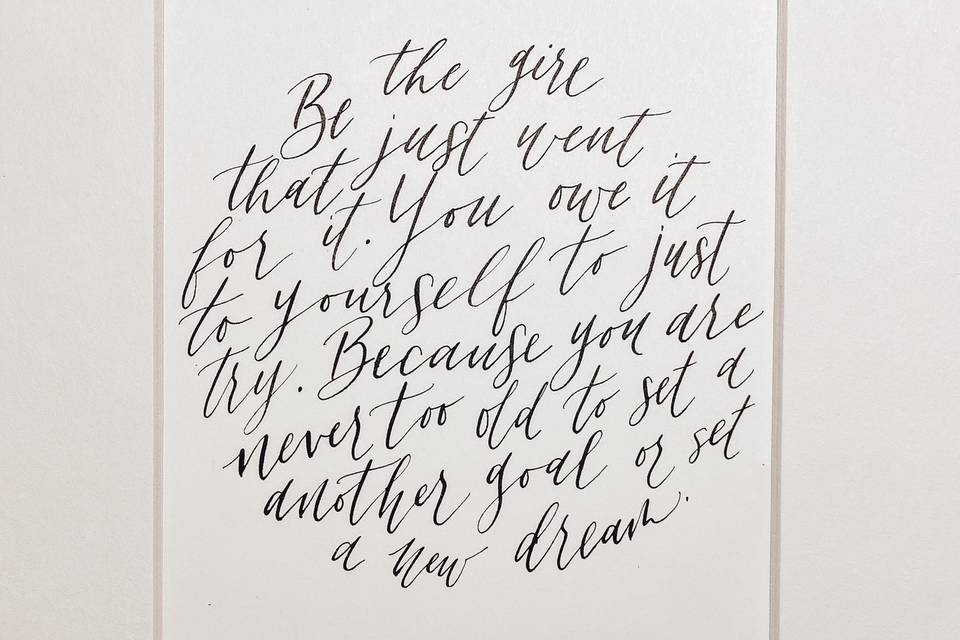 Be the girl
that just went
for it. You owe it
to yourself to just
try. Because you are
never too old to set a
another goal or set
a new dream.